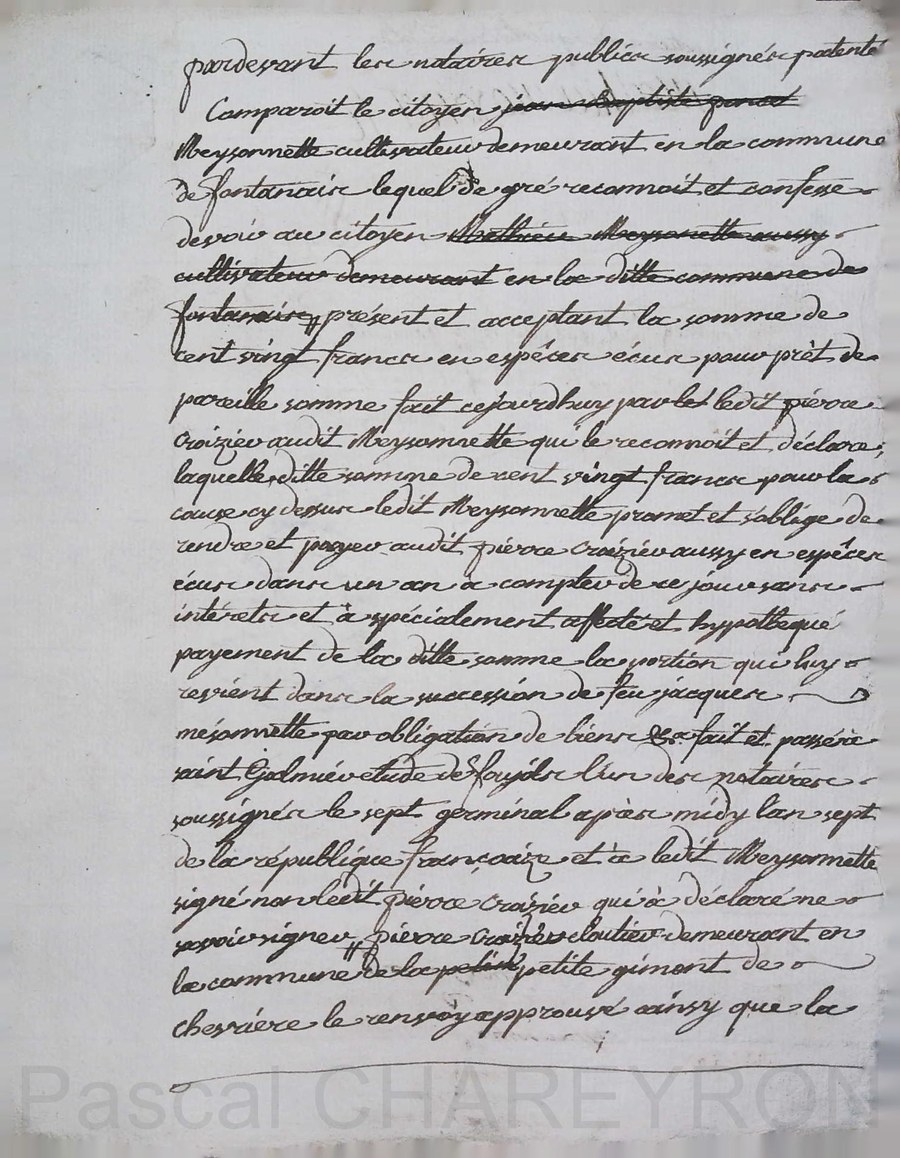 pardevant les notaires publics soussignés patenté
Comparoit le citoyen jean Baptiste poncet
Meysonnette cultivateur demeurant en la commune
de fontanais lequel de gré reconnoit et confesse
devoir au citoyen Mathieu Meysonette aussy
cultivateur demeurant en la ditte commune de
fontanais, présent et acceptant la somme de
cent vingt francs en espêces écus pour prêt de
pareille somme fait cejourdhuy par les ledit piérre
Croiziér audit Meysonnette qui le reconnoit et déclare,
laquelle ditte somme de cent vingt francs pour la
cause cy dessus ledit Meysonnette promet et s'oblige de
rendre et payer audit piérre Croiziér aussy en espêces
écus dans un an à compter de ce jour sans
intérets et à spécialement affecté et hypothequé
payement de la ditte somme la portion qui luy
revient dans la succession de feu jacques
mésonnette par obligation de biens fait et passé à
saint Galmiér etude de foujols l'un des notaires
soussignés le sept germinal après midy l'an sept
de la république françoaize et à ledit Meysonnette
signé non ledit piérre Croiziér qui à déclaré ne
savoir signer, piérre Croiziér cloutier demeurant en
la commune de la petite petite giment de
chevriere le renvoy approuvé ainsy que la
Pascal CHAREYRON